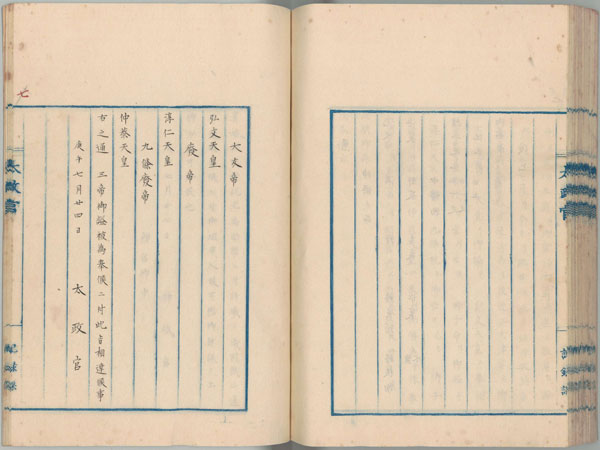 太政官
大友帝
弘文天皇
廢帝
淳仁天皇
九條廢帝
仲恭天皇
右之通 三帝御諡被為奉候ニ付此旨相達候事
庚午七月廿四日 太政官
七
太政官